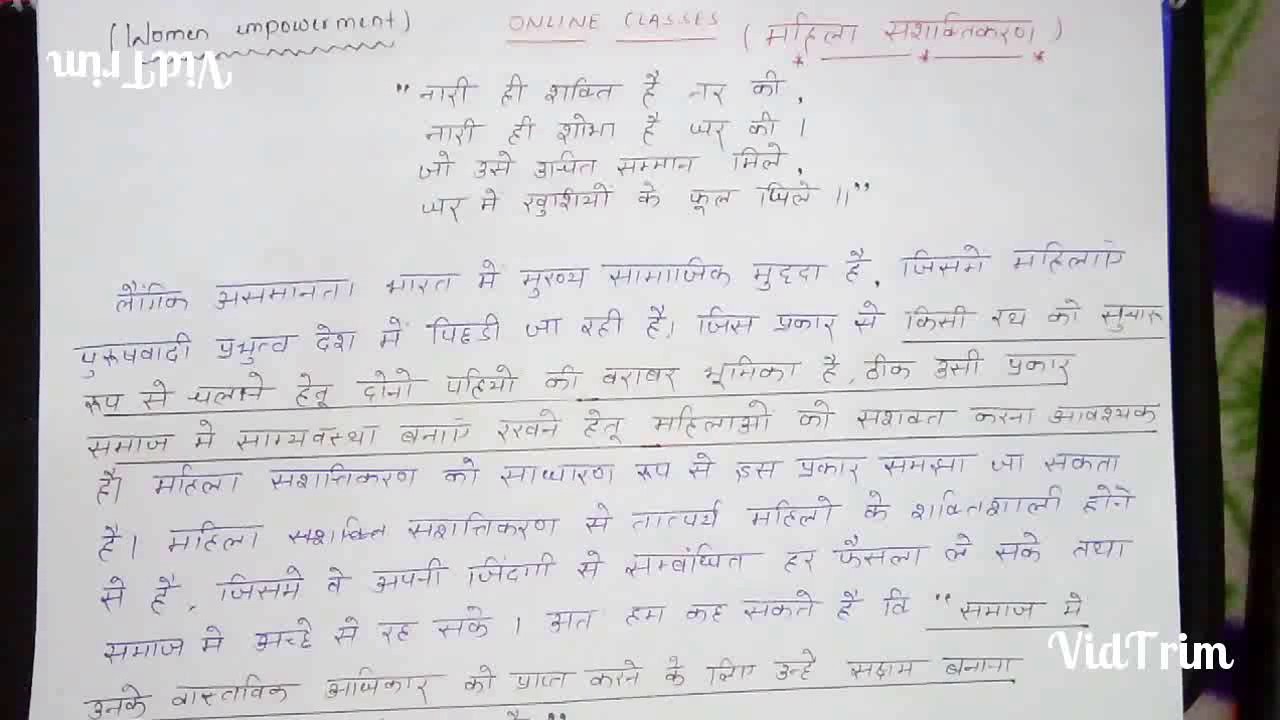 (Women empowerment) ONLINE CLASSES (महिला सशक्तिकरण)
VidTrim
"नारी ही शक्ति है नर की,
नारी ही शोभा है घर की।
जो उसे उचित सम्मान मिले,
घर मे खुशीयों के फूल खिले॥"
लैंगिक असमानता भारत मे मुख्य सामाजिक मुद्दा है, जिसमे महिलाएँ
पुरूषवादी प्रभुत्व देश में पिछडी जा रही है। जिस प्रकार से किसी रथ को सुचारू
रूप से चलाने हेतू दोनो पहियो की बराबर भूमिका है, ठीक उसी प्रकार
समाज मे साम्यवस्था बनाएँ रखने हेतू महिलाओ को सशक्त करना आवश्यक
है। महिला सशत्तिकरण को साधारण रूप से इस प्रकार समझा जा सकता
है। महिला सशत्तिकरण से तात्पर्य महिलो के शक्तिशाली होने
से है, जिसमे वे अपनी जिंदगी से सम्बंधित हर फैसला ले सके तथा
समाज मे अच्छे से रह सके। अत हम कह सकते है कि "समाज मे
VidTrim
उनके वास्तविक अधिकार को प्राप्त करने के लिए उन्हे सक्षम बनाना